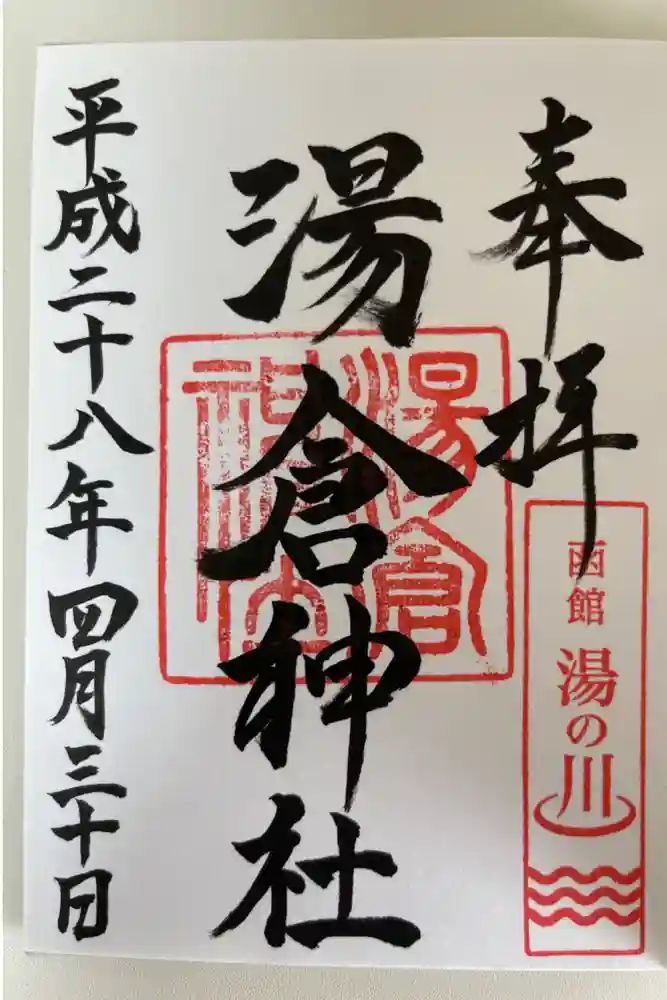 奉拝
函館
湯の川
湯倉神社
湯倉
神社
平成二十八年四月三十日